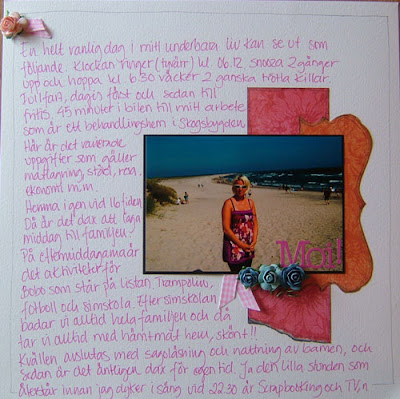 En helt vanlig dag i mitt underbara liv kan se ut som
följande. Klockan ringer (tyvärr) kl. 06.12, snooza 2 gånger
upp och hoppa kl 6.30 väcker 2 ganska trötta killar
full fart, dagis först och sedan till
fritis, 45 minuter i bilen till mitt arbete
som är ett behandlingshem i Skogsbygden.
Här är det varierade
uppgifter som gäller
matlagning, städ, resa,
ekonomi m.m.
Hemma igen vid 16 tiden
Då är det dax att laga
middag till familjen.
På eftermiddagarna är
det aktiviteter för
Bobo som står på listan, Trampolin,
fotboll och simskola. Efter simskolan
badar vi alltid hela familjen och då
tar vi alltid med hämtmat hem, skönt!!
Kvällen avslutas med sagoläsning och nattning av barnen, och
sedan är det äntligen dax för egen tid. Ja den lilla stunden som
återstår innan jag dyker i säng vid 22.30 är Scrapbooking och TV,n
Moi!